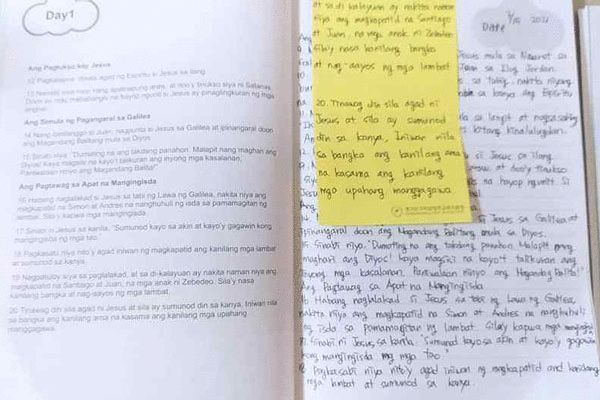 Day1
Ang Pagtukso kay Jesus
12 Pagkatapos, dinala agad ng Espiritu si Jesus sa ilang.
13 Nanatili siya roon nang apatnapung araw, at doo'y tinukso siya ni Satanas.
Doon ay may mababangis na hayop ngunit si Jesus ay pinaglingkuran ng mga
anghel.
Ang Simula ng Pangangaral sa Galilea
14 Nang ibilanggo si Juan, nagpunta si Jesus sa Galilea at ipinangaral doon
ang Magandang Balitang mula sa Diyos.
15 Sinabi niya, "Dumating na ang takdang panahon. Malapit nang maghari ang
Diyos! Kaya magsisi na kayo't talikuran ang inyong mga kasalanan.
Paniwalaan ninyo ang Magandang Balita!"
Ang Pagtawag sa Apat na Mangingisda
16 Habang naglalakad si Jesus sa tabi ng Lawa ng Galilea, nakita niya ang
magkapatid na Simon at Andres na nanghuhuli ng isda sa pamamagitan ng
lambat. Sila'y kapwa mangingisda.
17 Sinabi ni Jesus sa kanila. "Sumunod kayo sa akin at kayo'y gagawin kong
mangingisda ng mga tao."
18 Pagkasabi niya nito'y agad iniwan ng magkapatid ang kanilang mga lambat
at sumunod sa kanya.
19 Nagpatuloy siya sa paglalakad, at sa di-kalayuan ay nakita naman niya ang
magkapatid na Santiago at Juan, na mga anak ni Zebedeo. Sila'y nasa
kanilang bangka at nag-aayos ng mga lambat.
20 Tinawag din sila agad ni Jesus at sila ay sumunod din sa kanya. Iniwan nila
sa bangka ang kanilang ama na kasama ang kanilang mga upahang
manggagawa.
at sa di kalayuan ay nakita naman
niya ang magkapatid na Santiago
at Juan, na mga anak ni Zebedeo
Sila'y nasa kanilang bangka
at nag-aayos ng mga lambat
20. Tinawag din sila agad ni
Jesus at sila ay sumunod
din sa kanya, Iniwan nila
sa bangka ang kanilang ama
na kasama ang kanilang
mga upahang manggagawa
DATE
Jesus mula sa Nazaret sa
sa Ilog Jordan.
sa tubig, nakita niyang
sa kanya ang Espiritu
sa langit at nagsasabing
kitang kinalulugdan.
si Jesus sa ilang.
araw, at doo'y tinukso
na hayop ngunit si
si Jesus sa Galilea at
ipinangaral doon ang Magandang Balitang mula sa Diyos.
15 Sinabi niya, "Dumating na ang takdang panahon Malapit nang
maghari ang Diyos! kaya magsisi na kayo't talikuran ang
inyong mga kasalanan. Paniwalaan ninyo ang Magandang Balita!"
Ang Pagtawag sa Apat na Mangingisda
16 Habang naglalakad si Jesus sa tabi ng Lawa ng Galilea,
nakita niya ang magkapatid na Simon at Andres na nanghuhuli
ng isda sa pamamagitan ng lambat. Sila'y kapwa mangingisda
17 Sinabi ni Jesus, sa kanila. "Sumunod kayo sa akin at kayo'y gagawin
kong mangingisda ng mga tao"
18 Pagkasabi niya nito'y agad iniwan ng magkapatid ang kanilang
mga lambat at sumunod sa kanya.